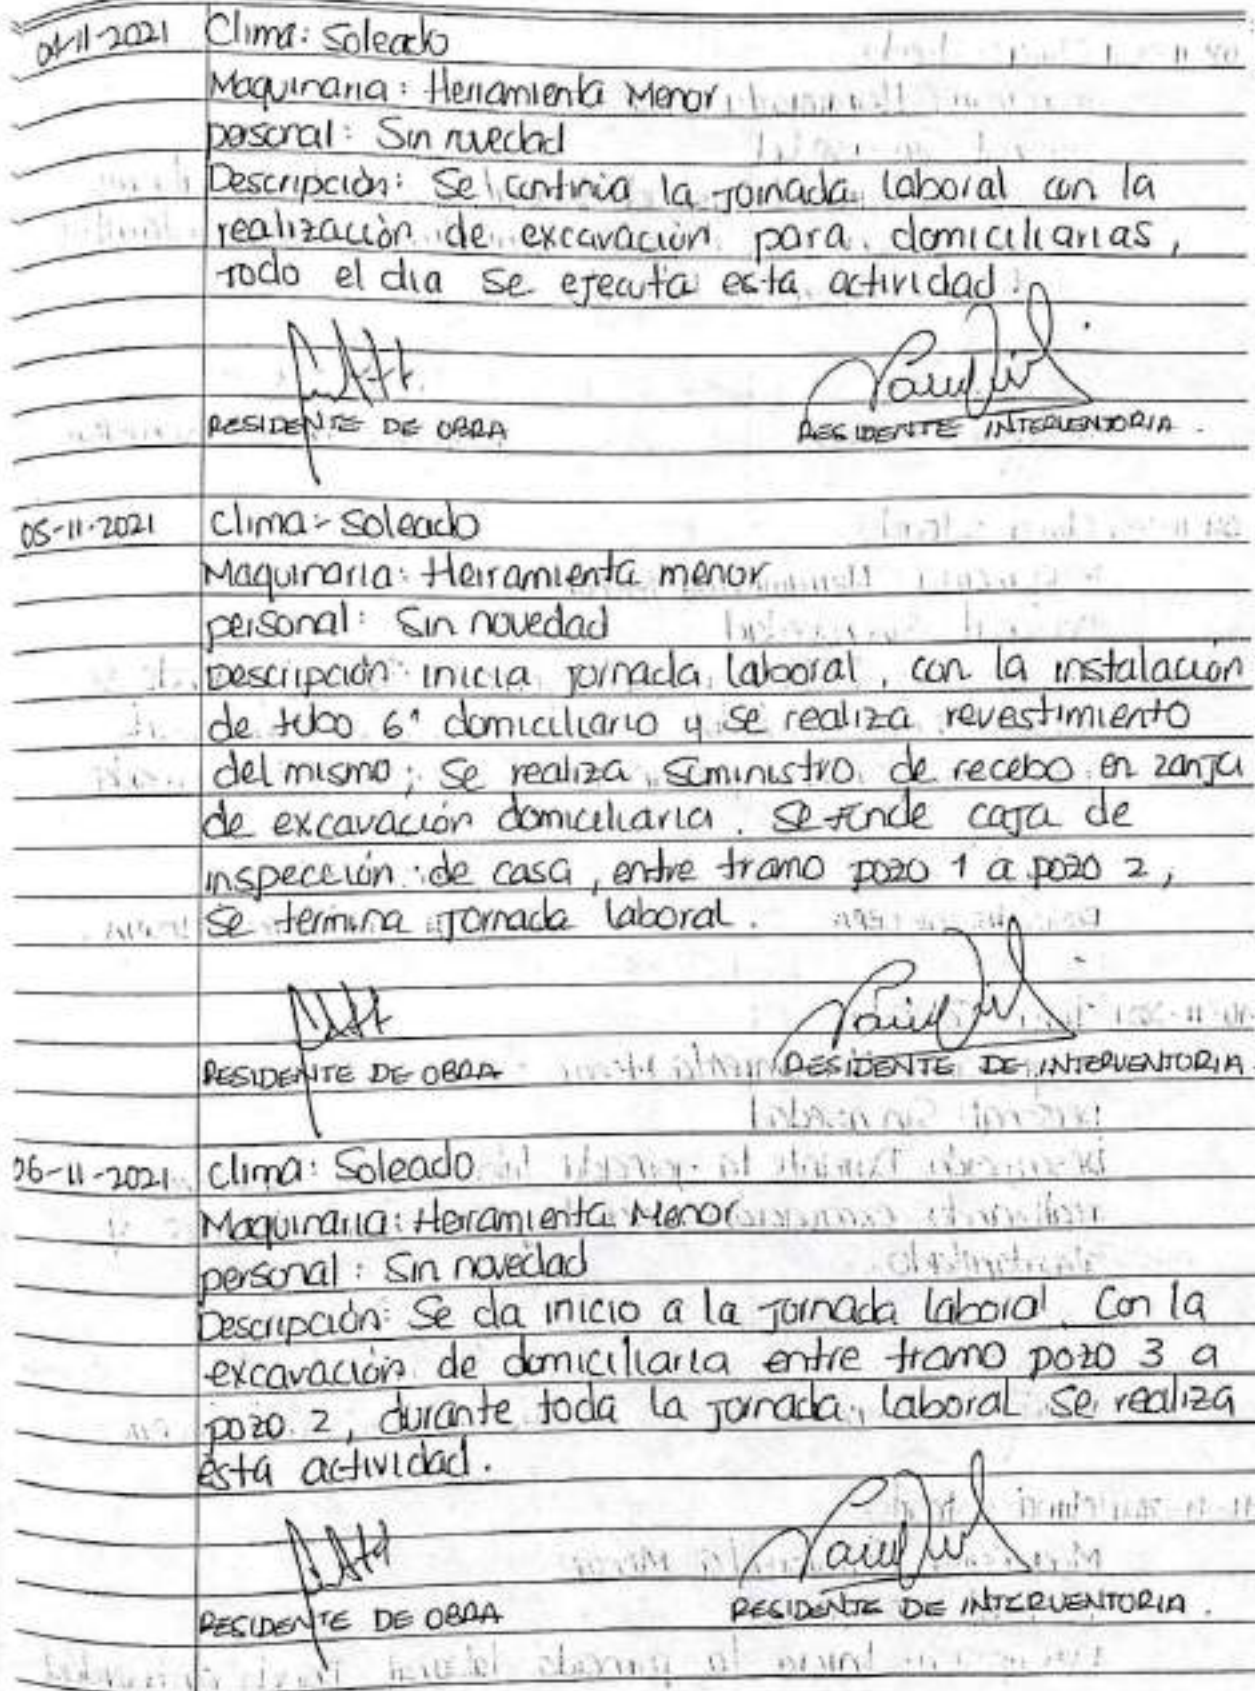 04-11-2021 Clima: Soleado
Maquinaria: Herramienta Menor
personal: Sin novedad
Descripción: Se continia la jornada laboral con la
realización de excavación para domiciliarias,
todo el dia se ejecuta esta actividad.
RESIDENTE DE OBRA RESIDENTE INTERVENTORIA.
05-11-2021 Clima: Soleado
Maquinaria: Herramienta menor
personal: Sin novedad
Descripción: inicia jornada laboral, con la instalación
de tubo 6" domiciliario y se realiza revestimiento
del mismo; Se realiza suministro de recebo en zanja
de excavación domiciliaria. Se funde caja de
inspección de casa, entre tramo pozo 1 a pozo 2,
Se termina jornada laboral.
RESIDENTE DE OBRA RESIDENTE DE INTERVENTORIA.
06-11-2021 Clima: Soleado
Maquinaria: Herramienta Menor
personal: Sin novedad
Descripción: Se da inicio a la jornada laboral Con la
excavación de domiciliaria entre tramo pozo 3 a
pozo 2, durante toda la jornada laboral se realiza
esta actividad.
RESIDENTE DE OBRA RESIDENTE DE INTERVENTORIA.